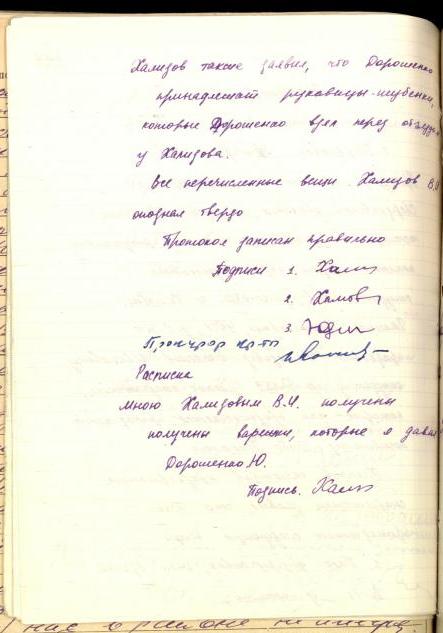 Хализов также заявил, что Дорошенко
принадлежат рукавицы-шубенки,
которые Дорошенко взял перед отъездом
у Хализова.
Все перечисленные вещи Хализов В.И
опознал твердо
Протокол записан правильно
Подписи 1. Хализ
2.
3. Юдин
Прокурор кр-та
Расписка
Мною Хализовым В.И. получены
получены варешки, которые я давал
Дорошенко Ю.
Подпись. Хализ
нас в районе не